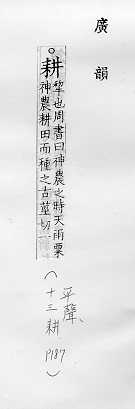 廣韻
。耕
犂也周書曰神農之時天雨粟
神農耕田而種之古莖切一
(平聲、
十三耕 P187)